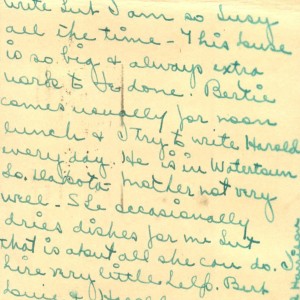 write but I am so busy
all the time - This house
is so big & always extra
work to be done. Bertie
comes usually for noon
lunch & I try to write Harold
every day. He is in Watertown
So. Dakota - Mother not very
well - She occasionally
dries dishes for me but
that is about all she can do. I
hire very little help. Bert